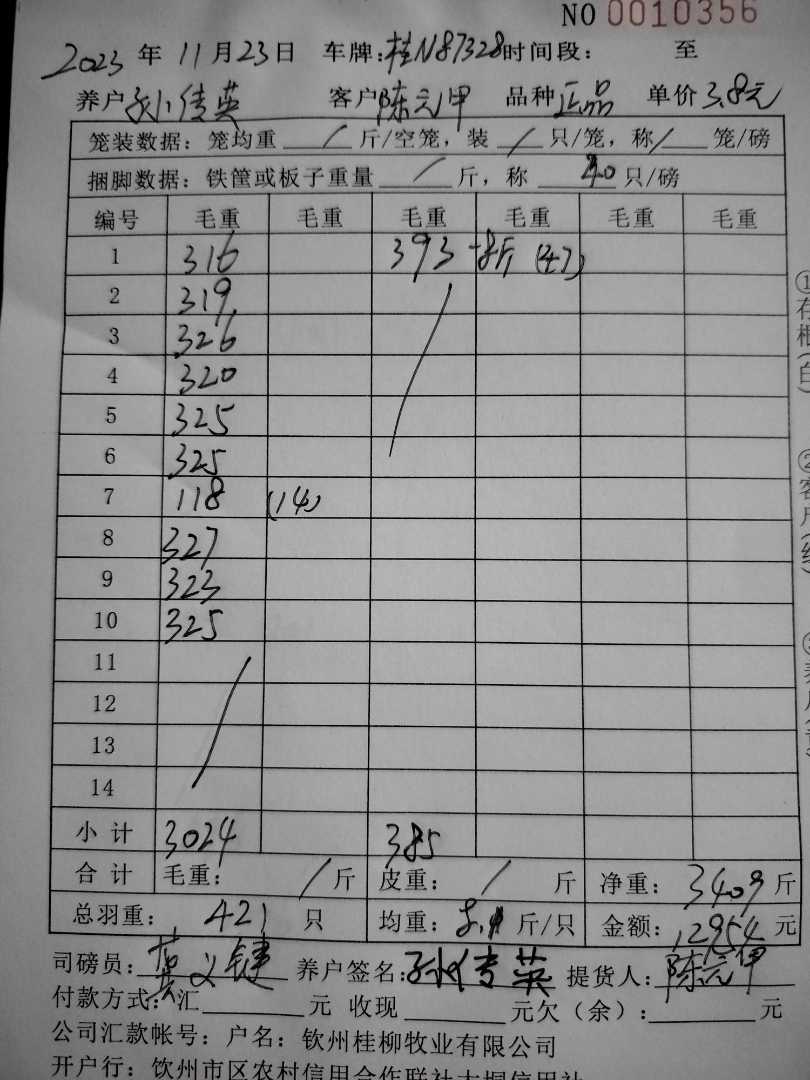 NO 0010356
2023 年 11 月 23 日 车牌:桂N87328 时间段: 至
养户 孙传英 客户 陈元甲 品种 正品 单价 3.8元
笼装数据: 笼均重 / 斤/空笼, 装 / 只/笼, 称 / 笼/磅
捆脚数据: 铁筐或板子重量 / 斤, 称 40 只/磅
编号 毛重 毛重 毛重 毛重 毛重 毛重
1 316 393 -8斤 (47)
2 319
3 326
4 320
5 325
6 325
7 118 (14)
8 327
9 323
10 325
11
12
13
14
小计 3024 385
合计 毛重: / 斤 皮重: / 斤 净重: 3409 斤
总羽重: 421 只 均重: 8.1 斤/只 金额: 12954 元
司磅员: 义键 养户签名: 孙传英 提货人: 陈元甲
付款方式: 汇 元 收现 元欠(余): 元
公司汇款帐号: 户名: 钦州桂柳牧业有限公司
开户行: 钦州市区农村信用合作联社大垌信用社
①存根(白)
②客户(红)